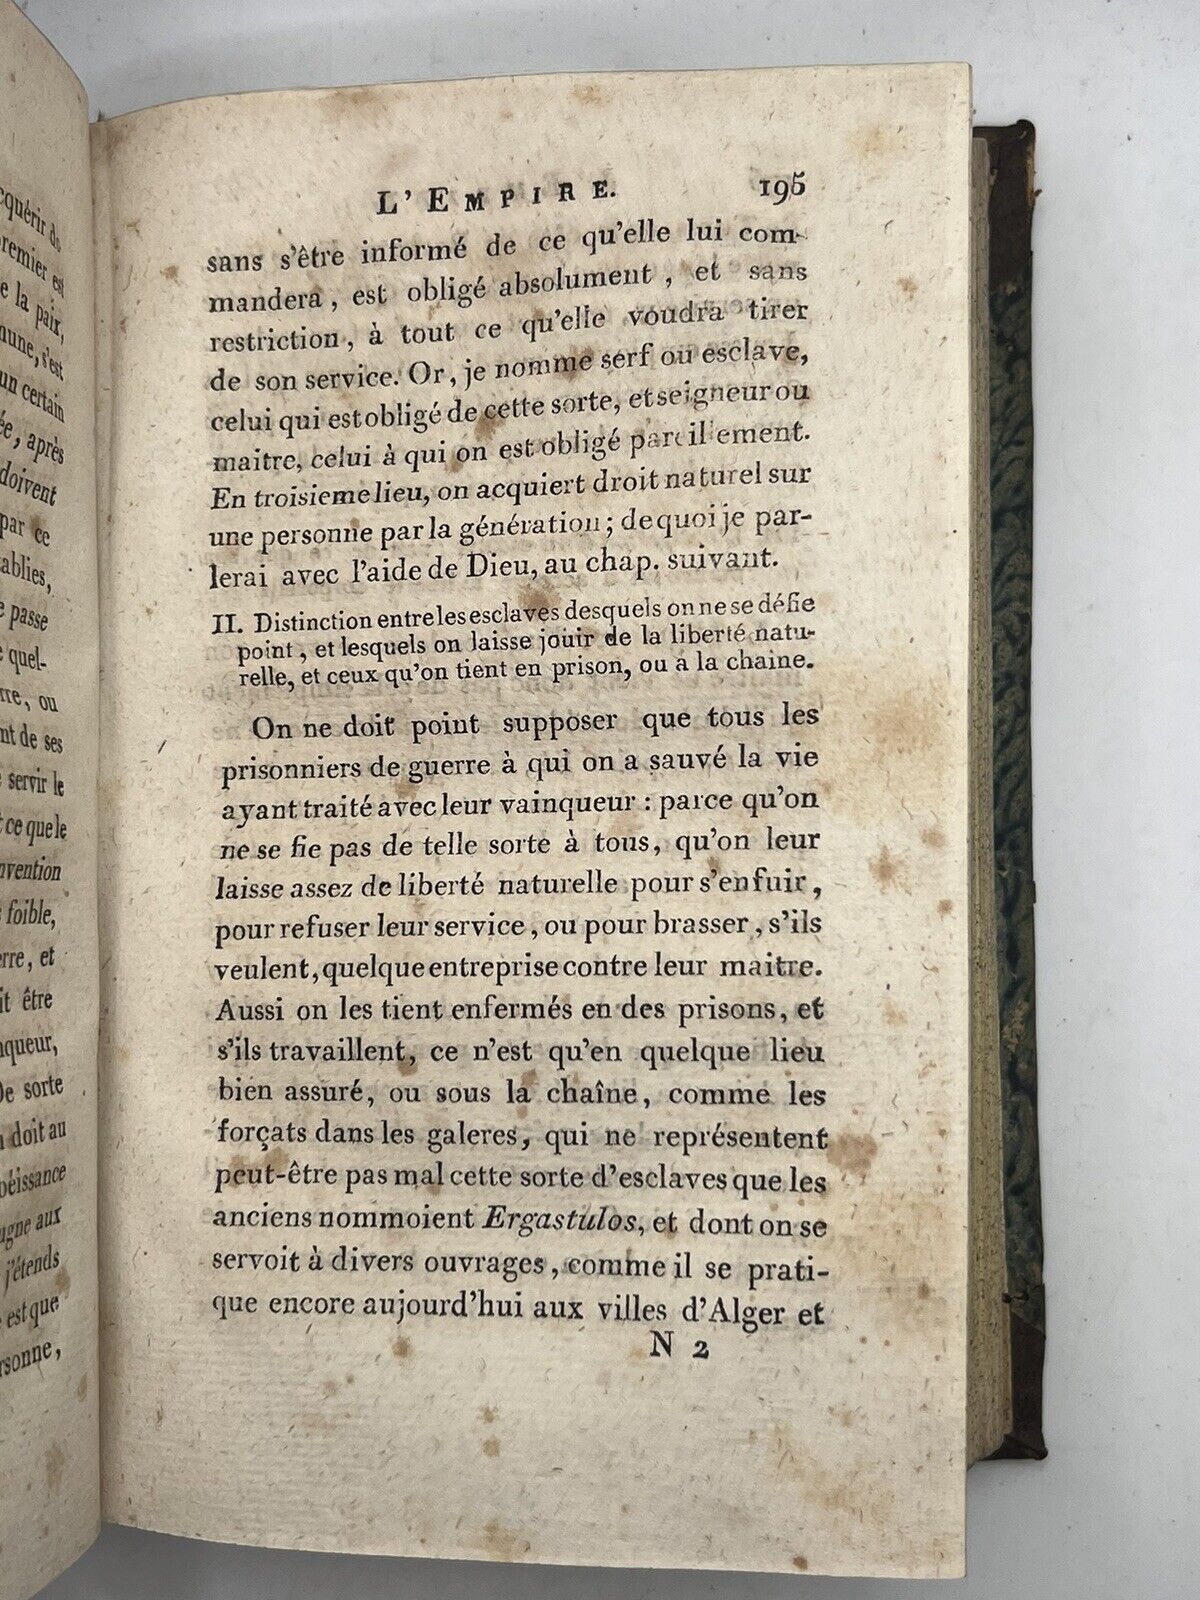 cquérir
remier est
e la paix,
mune, s'est
un certain
ée, après
doivent
par ce
tablies,
e passe
e quel-
rre, ou
nt de ses
servir le
t ce que le
nvention
foible,
erre, et
it être
nqueur,
De sorte
doit au
béissance
gne aux
j'étends
est que
rsonne,
L'EMPIRE. 195
sans s'être informé de ce qu'elle lui com-
mandera, est obligé absolument, et sans
restriction, à tout ce qu'elle voudra tirer
de son service. Or, je nomme serf ou esclave,
celui qui est obligé de cette sorte, et seigneur ou
maitre, celui à qui on est obligé pareillement.
En troisieme lieu, on acquiert droit naturel sur
une personne par la génération; de quoi je par-
lerai avec l'aide de Dieu, au chap. suivant.
II. Distinction entre les esclaves desquels on ne se défie
point, et lesquels on laisse jouir de la liberté natu-
relle, et ceux qu'on tient en prison, ou à la chaine.
On ne doit point supposer que tous les
prisonniers de guerre à qui on a sauvé la vie
ayant traité avec leur vainqueur : parce qu'on
ne se fie pas de telle sorte à tous, qu'on leur
laisse assez de liberté naturelle pour s'enfuir,
pour refuser leur service, ou pour brasser, s'ils
veulent, quelque entreprise contre leur maitre.
Aussi on les tient enfermés en des prisons, et
s'ils travaillent, ce n'est qu'en quelque lieu
bien assuré, ou sous la chaîne, comme les
forçats dans les galeres, qui ne représentent
peut-être pas mal cette sorte d'esclaves que les
anciens nommoient Ergastulos, et dont on se
servoit à divers ouvrages, comme il se prati-
que encore aujourd'hui aux villes d'Alger et
N 2